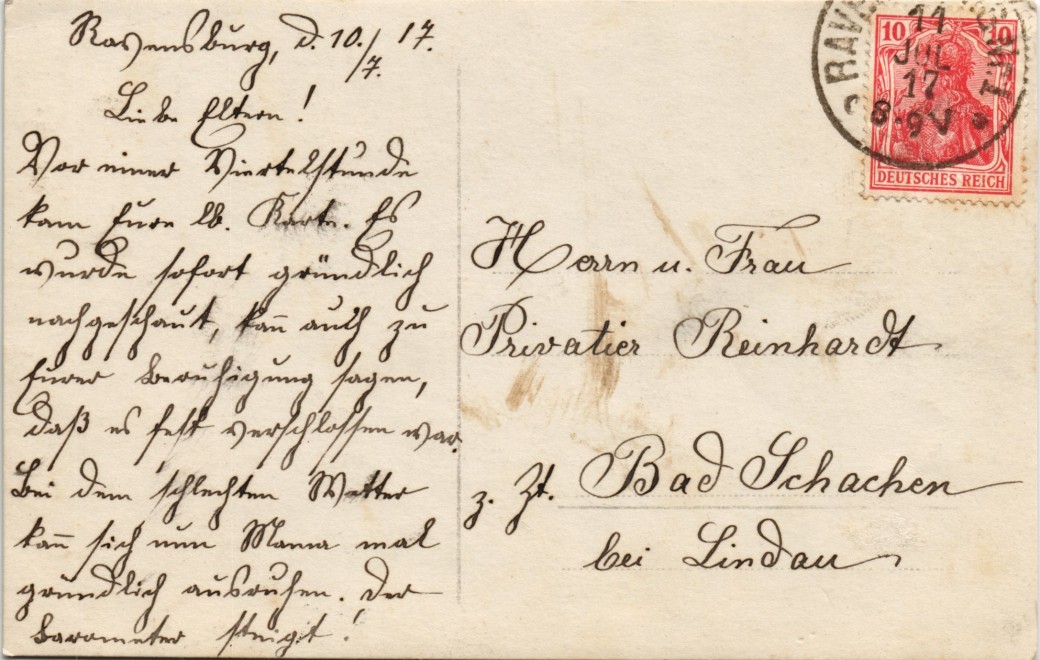 Ravensburg, d. 10./7. 17.
Liebe Eltern!
Vor einer Viertelstunde
kam Eure lb. Karte. Es
wurde sofort gründlich
nachgeschaut, kann auch zu
Eurer Beruhigung sagen,
daß es fest verschlossen war.
Bei dem schlechten Wetter
kann sich nun Mama mal
gründlich ausruhen. Der
Barometer steigt!
RAV
11
JUL
17
8-9V
10 10
DEUTSCHES REICH
Herrn u. Frau
Privatier Reinhardt
z. Zt. Bad Schachen
bei Lindau